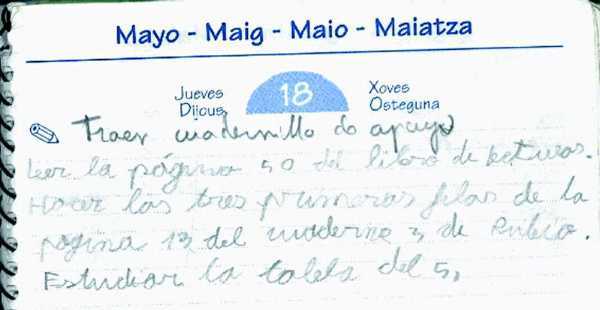 Mayo - Maig - Maio - Maiatza
Jueves 18 Xoves
Dijous Osteguna
Traer cuadernillo do apoyo
Leer la página 50 del libro de lecturas.
Hacer las tres primeras filas de la
pagina 13 del cuaderno 3 de Rubio.
Estudiar la tabla del 5,